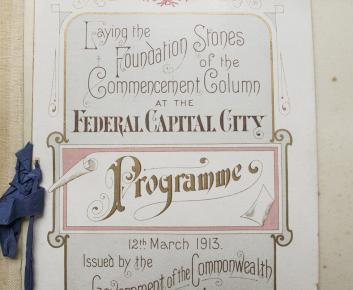 Laying the
Foundation Stones
of the
Commencement Column
AT THE
FEDERAL CAPITAL CITY
Programme
12th March 1913.
Issued by the
Government of the Commonwealth